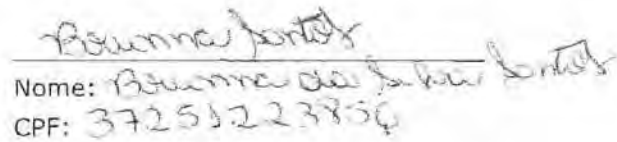 Brunna Santos
Nome: Brunna da Silva Santos
CPF: 37251223850